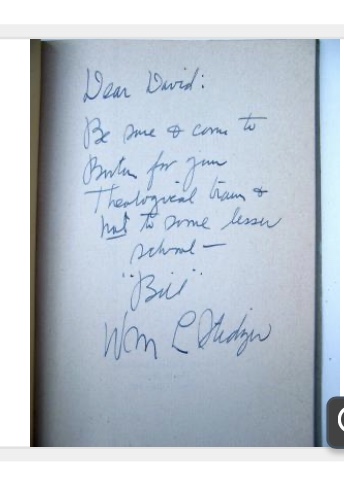 Dear David:
Be sure & come to
Boston for your
Theological train &
not to some lesser
school —
"Bill"
Wm L Stidger